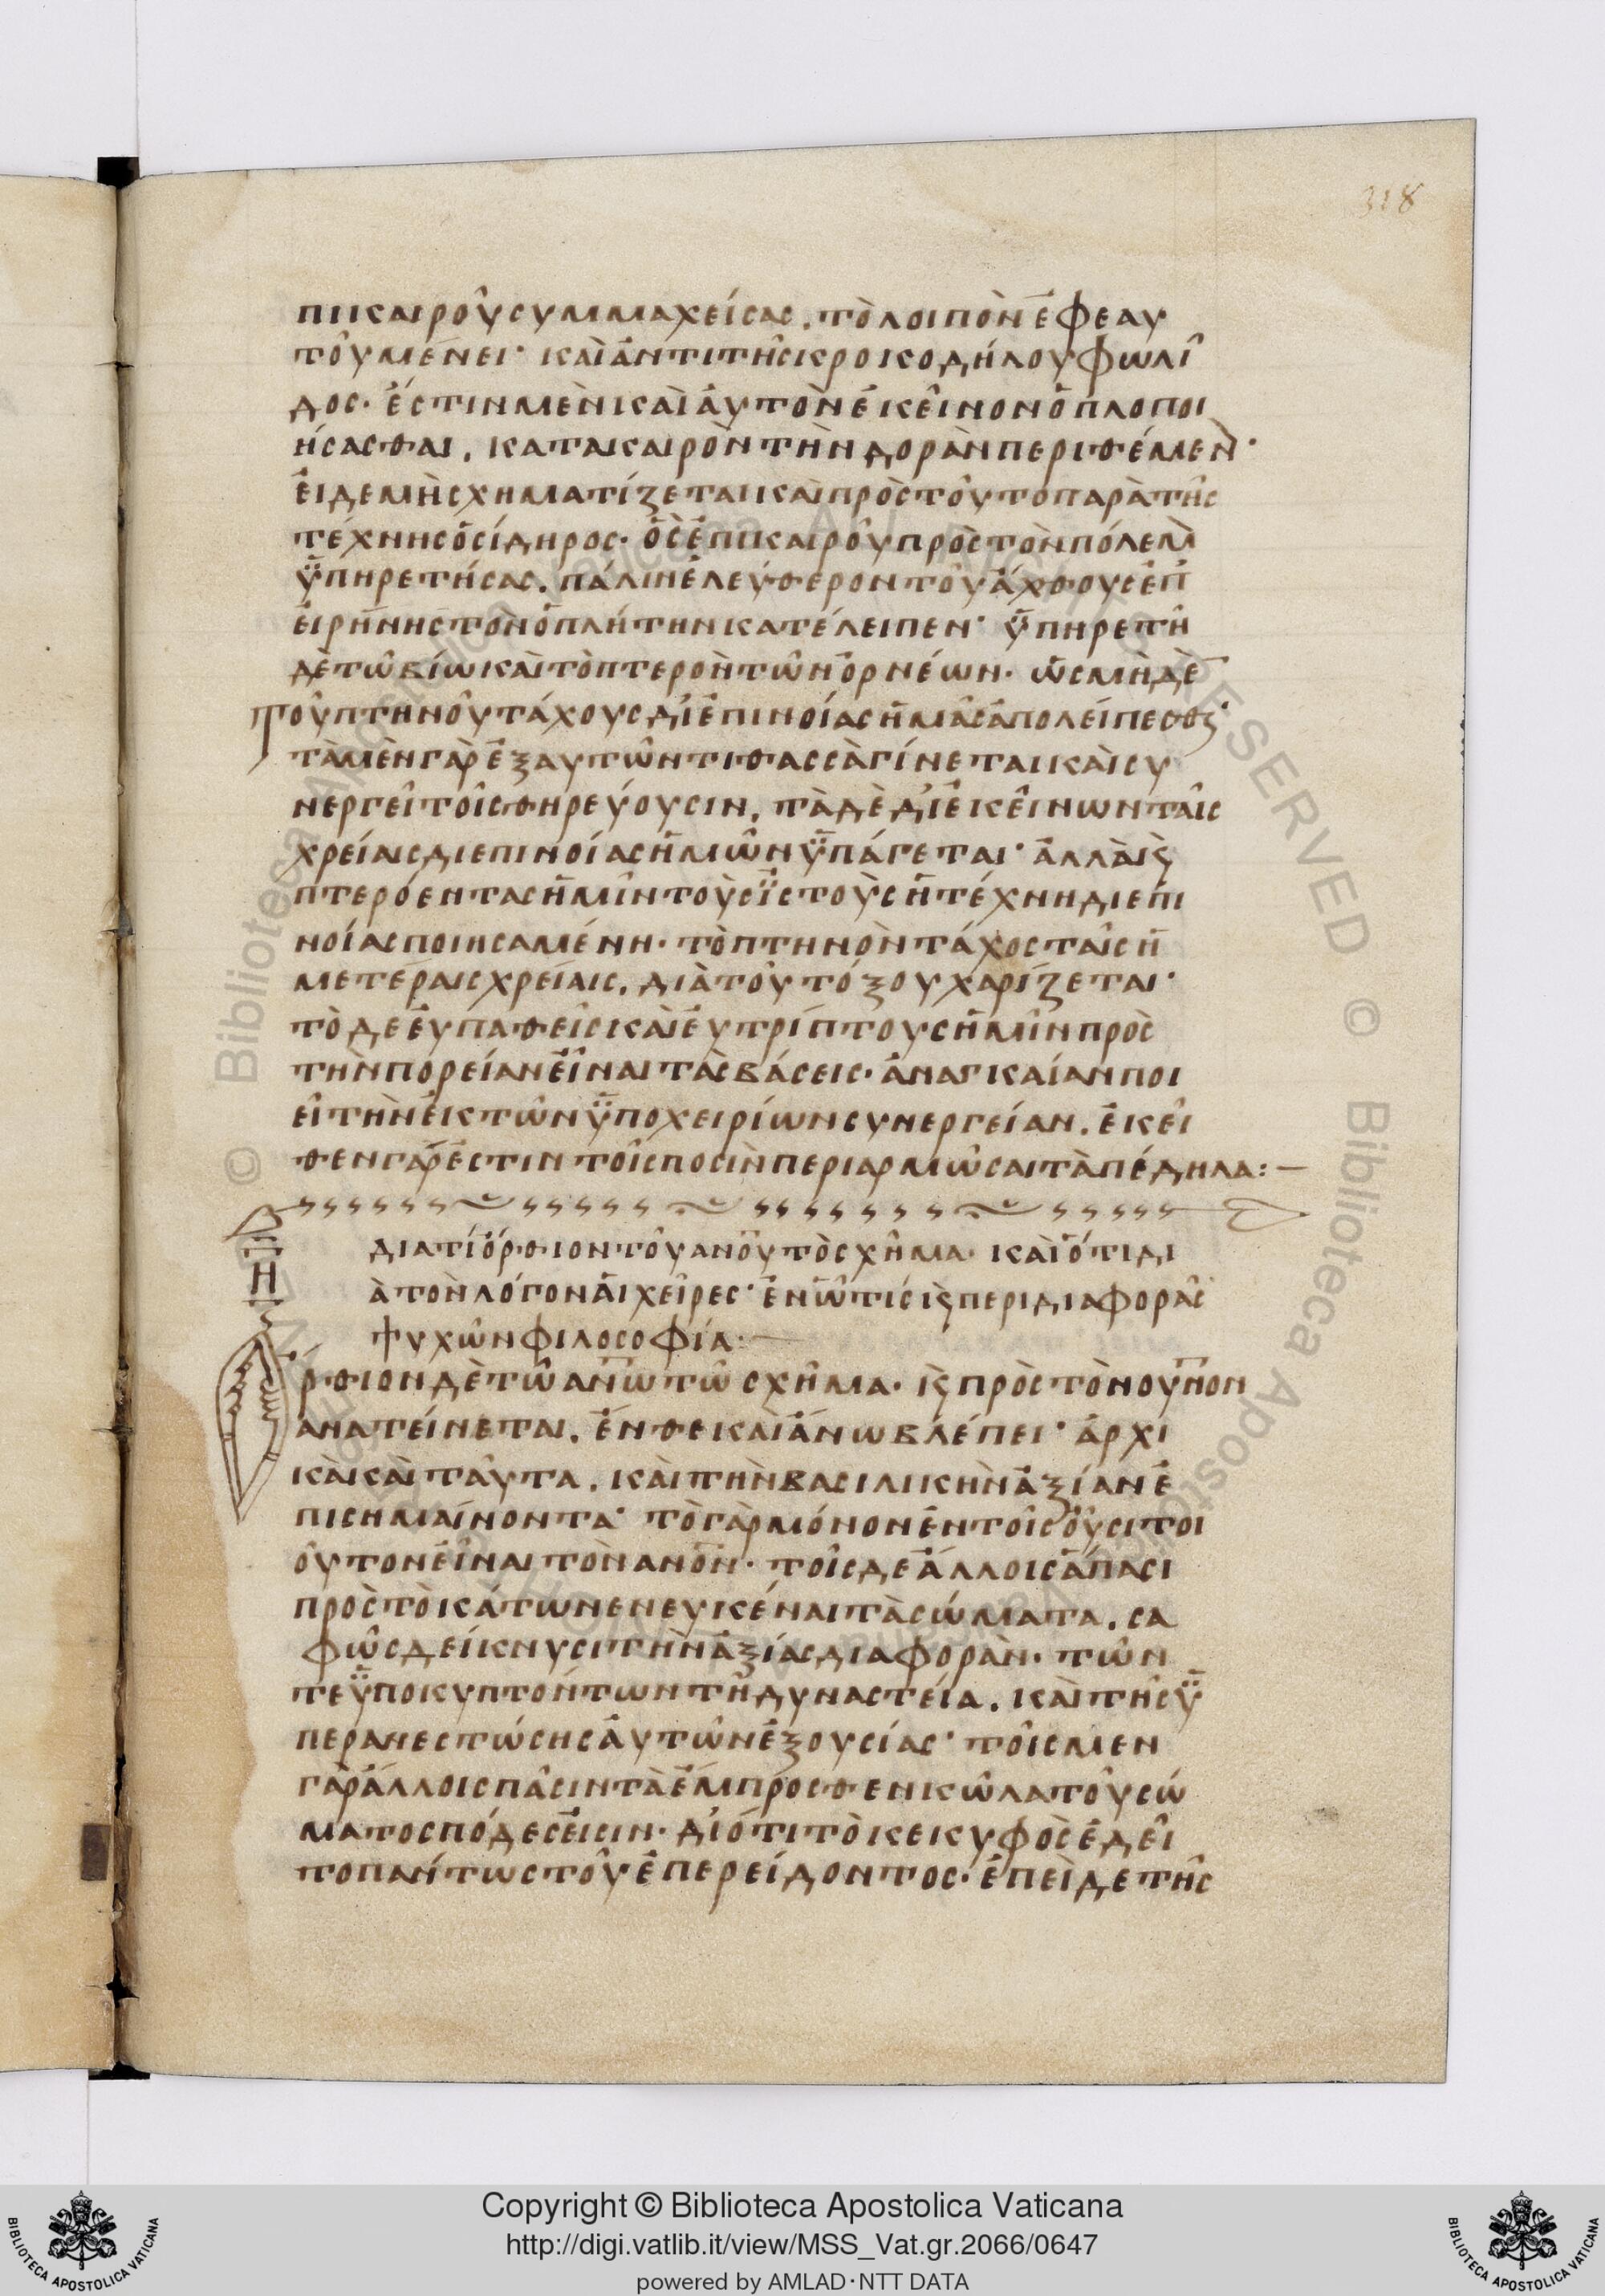 318
πικαιροῦ συμμαχείσας. τὸ λοιπὸν ἐφεαυ
τοῦ μένει· καὶ ἀντι τῆς κροκοδήλου φωλί
δος. ἔστιν μὲν καὶ ἀυτὸν ἐκεῖνον ὁπλοποι
ήσασθαι. κατακαιρὸν τὴν δορὰν περιθέμεν·
εἰ δε μὴ σχηματίζεται καὶ πρὸς τοῦτο παρὰ τῆς
τέχνης ὁ σίδηρος. ὃς ἐπικαιροῦ πρὸς τὸν πόλεμ
ὑπηρετήσας. πάλιν ἐλεύθερον τοῦ ἄχθους ἐπ
εἰρήνης τὸν ὁπλήτην κατέλειπεν· ὑπηρετῆ
δὲ τῶ βίω καὶ τὸ πτερὸν τῶν ὀρνέων. ὡς μὴ δὲ
τοῦ πτηνοῦ τάχους δι ἐπινοίας ἡμᾶς ἀπολείπεσθϗ·
τὰ μὲν γὰρ ἐξ αυτῶν τιθασσὰ γίνεται καὶ συ
νεργεῖ τοῖς θηρεύουσιν. τὰ δὲ δι ἐκείνων ταῖς
χρείαις δι επινοίας ἡμῶν ὑπάγεται· ἀλλὰ ϗ
πτερόεντας ἡμῖν τοὺς ϊστοὺς ἡ τέχνη δι επι
νοίας ποιησαμένη. τὸ πτηνὸν τάχος ταῖς ἡ
μετέραις χρείαις. διὰ τοῦ τόξου χαρίζεται·
τὸ δε ἐυπαθεῖς καὶ ἐυτρίπτους ἡμῖν πρὸς
τὴν πορείαν εἶναι τὰς βάσεις. ἀναγκαίαν ποι
εῖ τὴν ἐκ τῶν ὑποχειρίων συνεργείαν. ἐκεῖ
θεν γάρ ἐστιν τοῖς ποσὶν περιαρμῶσαι τὰ πέδηλα:—
διατί ὄρθιον τοῦ ανου τὸ σχῆμα. καὶ ὅτι δι
ὰ τὸν λόγον ἁι χεῖρες· ἐν ὧ τίς ϗ περι διαφορᾶς
ψυχῶν φιλοσοφία:—
Η
ὄρθιον δὲ τῶ ανω τῶ σχῆμα. ϗ πρὸς τὸν ουνον
ανατείνεται. ἔνθε καὶ ἄνω βλέπει· ἀρχι
κὰι κὰι ταῦτα. κὰι τὴν βασιλικὴν ἀξίαν ἐ
πισημαίνοντα· τὸ γὰρ μόνον ἐν τοῖς οὖσι τοι
οῦτον εἶναι τὸν ανον. τοῖς δε ἄλλοις ἅπασι
πρὸς τὸ κάτω νενευκέναι τὰ σώματα. σα
φῶς δείκνυσι τὴν ἀξίας διαφορὰν. τῶν
τε ὑποκυπτόντων τῆ δυναστεία. καὶ τῆς ὑ
περανεστώσης ἀυτῶν ἐξουσίας· τοῖς μεν
γὰρ ἄλλοις πᾶσιν τὰ ἔμπροσθεν κῶλα τοῦ σώ
ματος πόδες εἰσιν. διότι τὸ κεκυφὸς ἐδεῖ
το παντως τοῦ ἐπερείδοντος. ἐπεὶ δε τῆς
Copyright © Biblioteca Apostolica Vaticana
http://digi.vatlib.it/view/MSS_Vat.gr.2066/0647
powered by AMLAD·NTT DATA